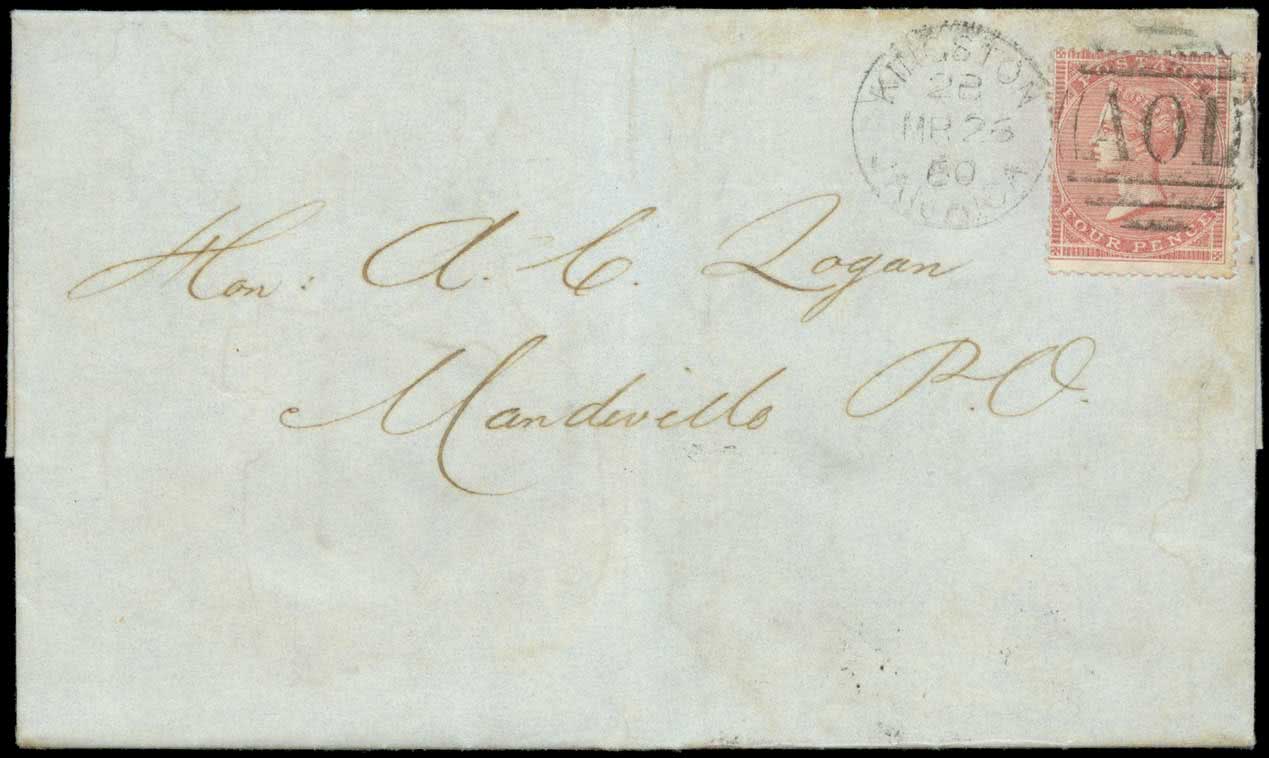 KINGSTON
2B
MR 26
60
JAMAICA
POSTAGE
A01
FOUR PENCE
Hon: A. C. Logan
Mandeville P.O.